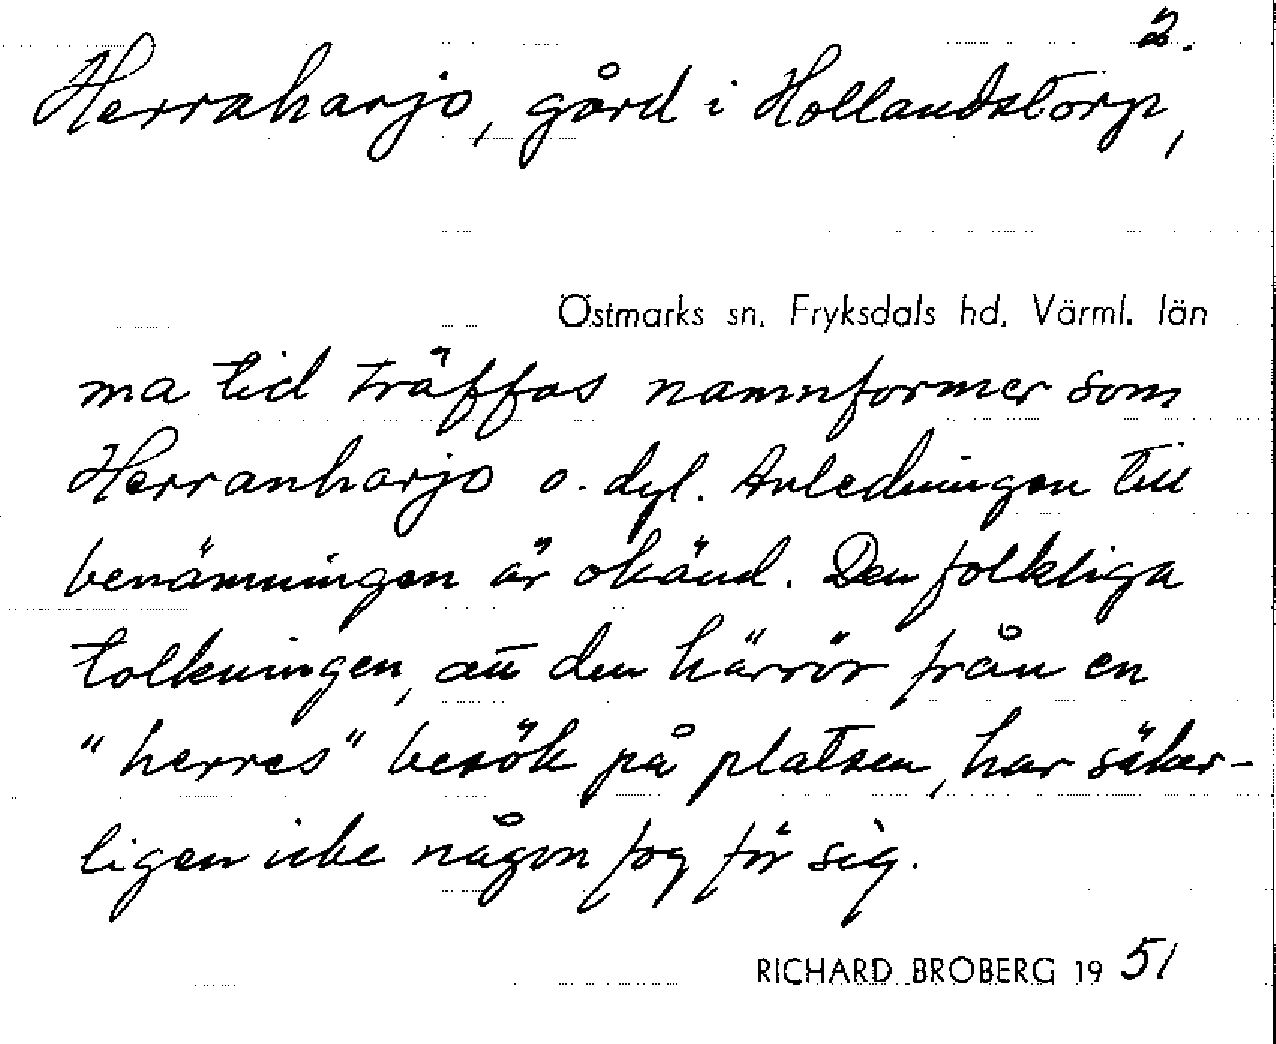 2.
Herraharjo, gård i Hollandstorp,
Östmarks sn, Fryksdals hd, Värml. län
ma tid träffas namnformer som
Herranharjo o. dyl. Anledningen till
benämningen är okänd. Den folkliga
tolkningen, att den härrör från en
"herres" besök på platsen, har säker-
ligen icke någon fog för sig.
RICHARD BROBERG 1951